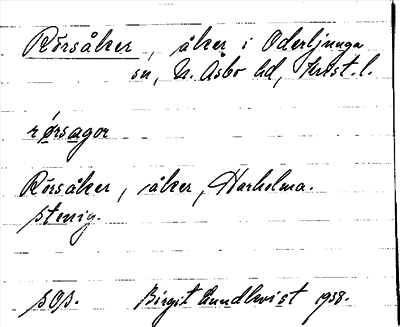 Rörsåker, åker i Oderljunga
sn, N. Åsbo hd, Krist. l.
rörsagor
Rörsåker, åker, Harholma.
stenig.
sOs. Birgit Lundkvist 1938.